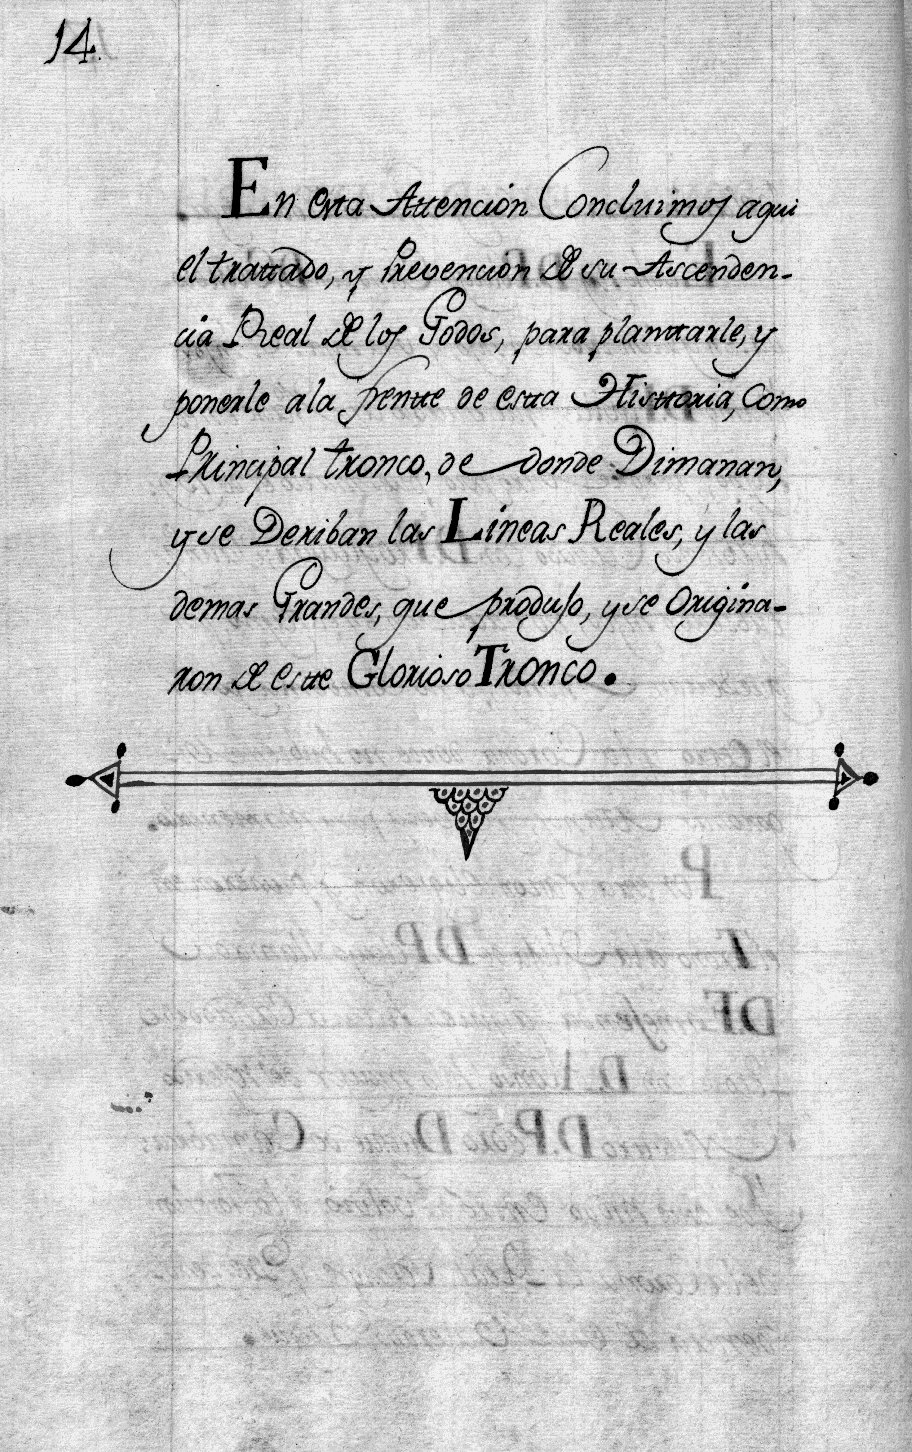 14.
En esta Attención Concluimos aqui
el trattado, y Prevención de su Ascenden-
cia Real de los Godos, para planttarle, y
ponerle a la frentte de estta Histtoria, Como
Principal tronco, de donde Dimanan,
y se Deriban las Líneas Reales, y las
demas Grandes, que produso, y se Origina-
ron de estte Glorioso Tronco.